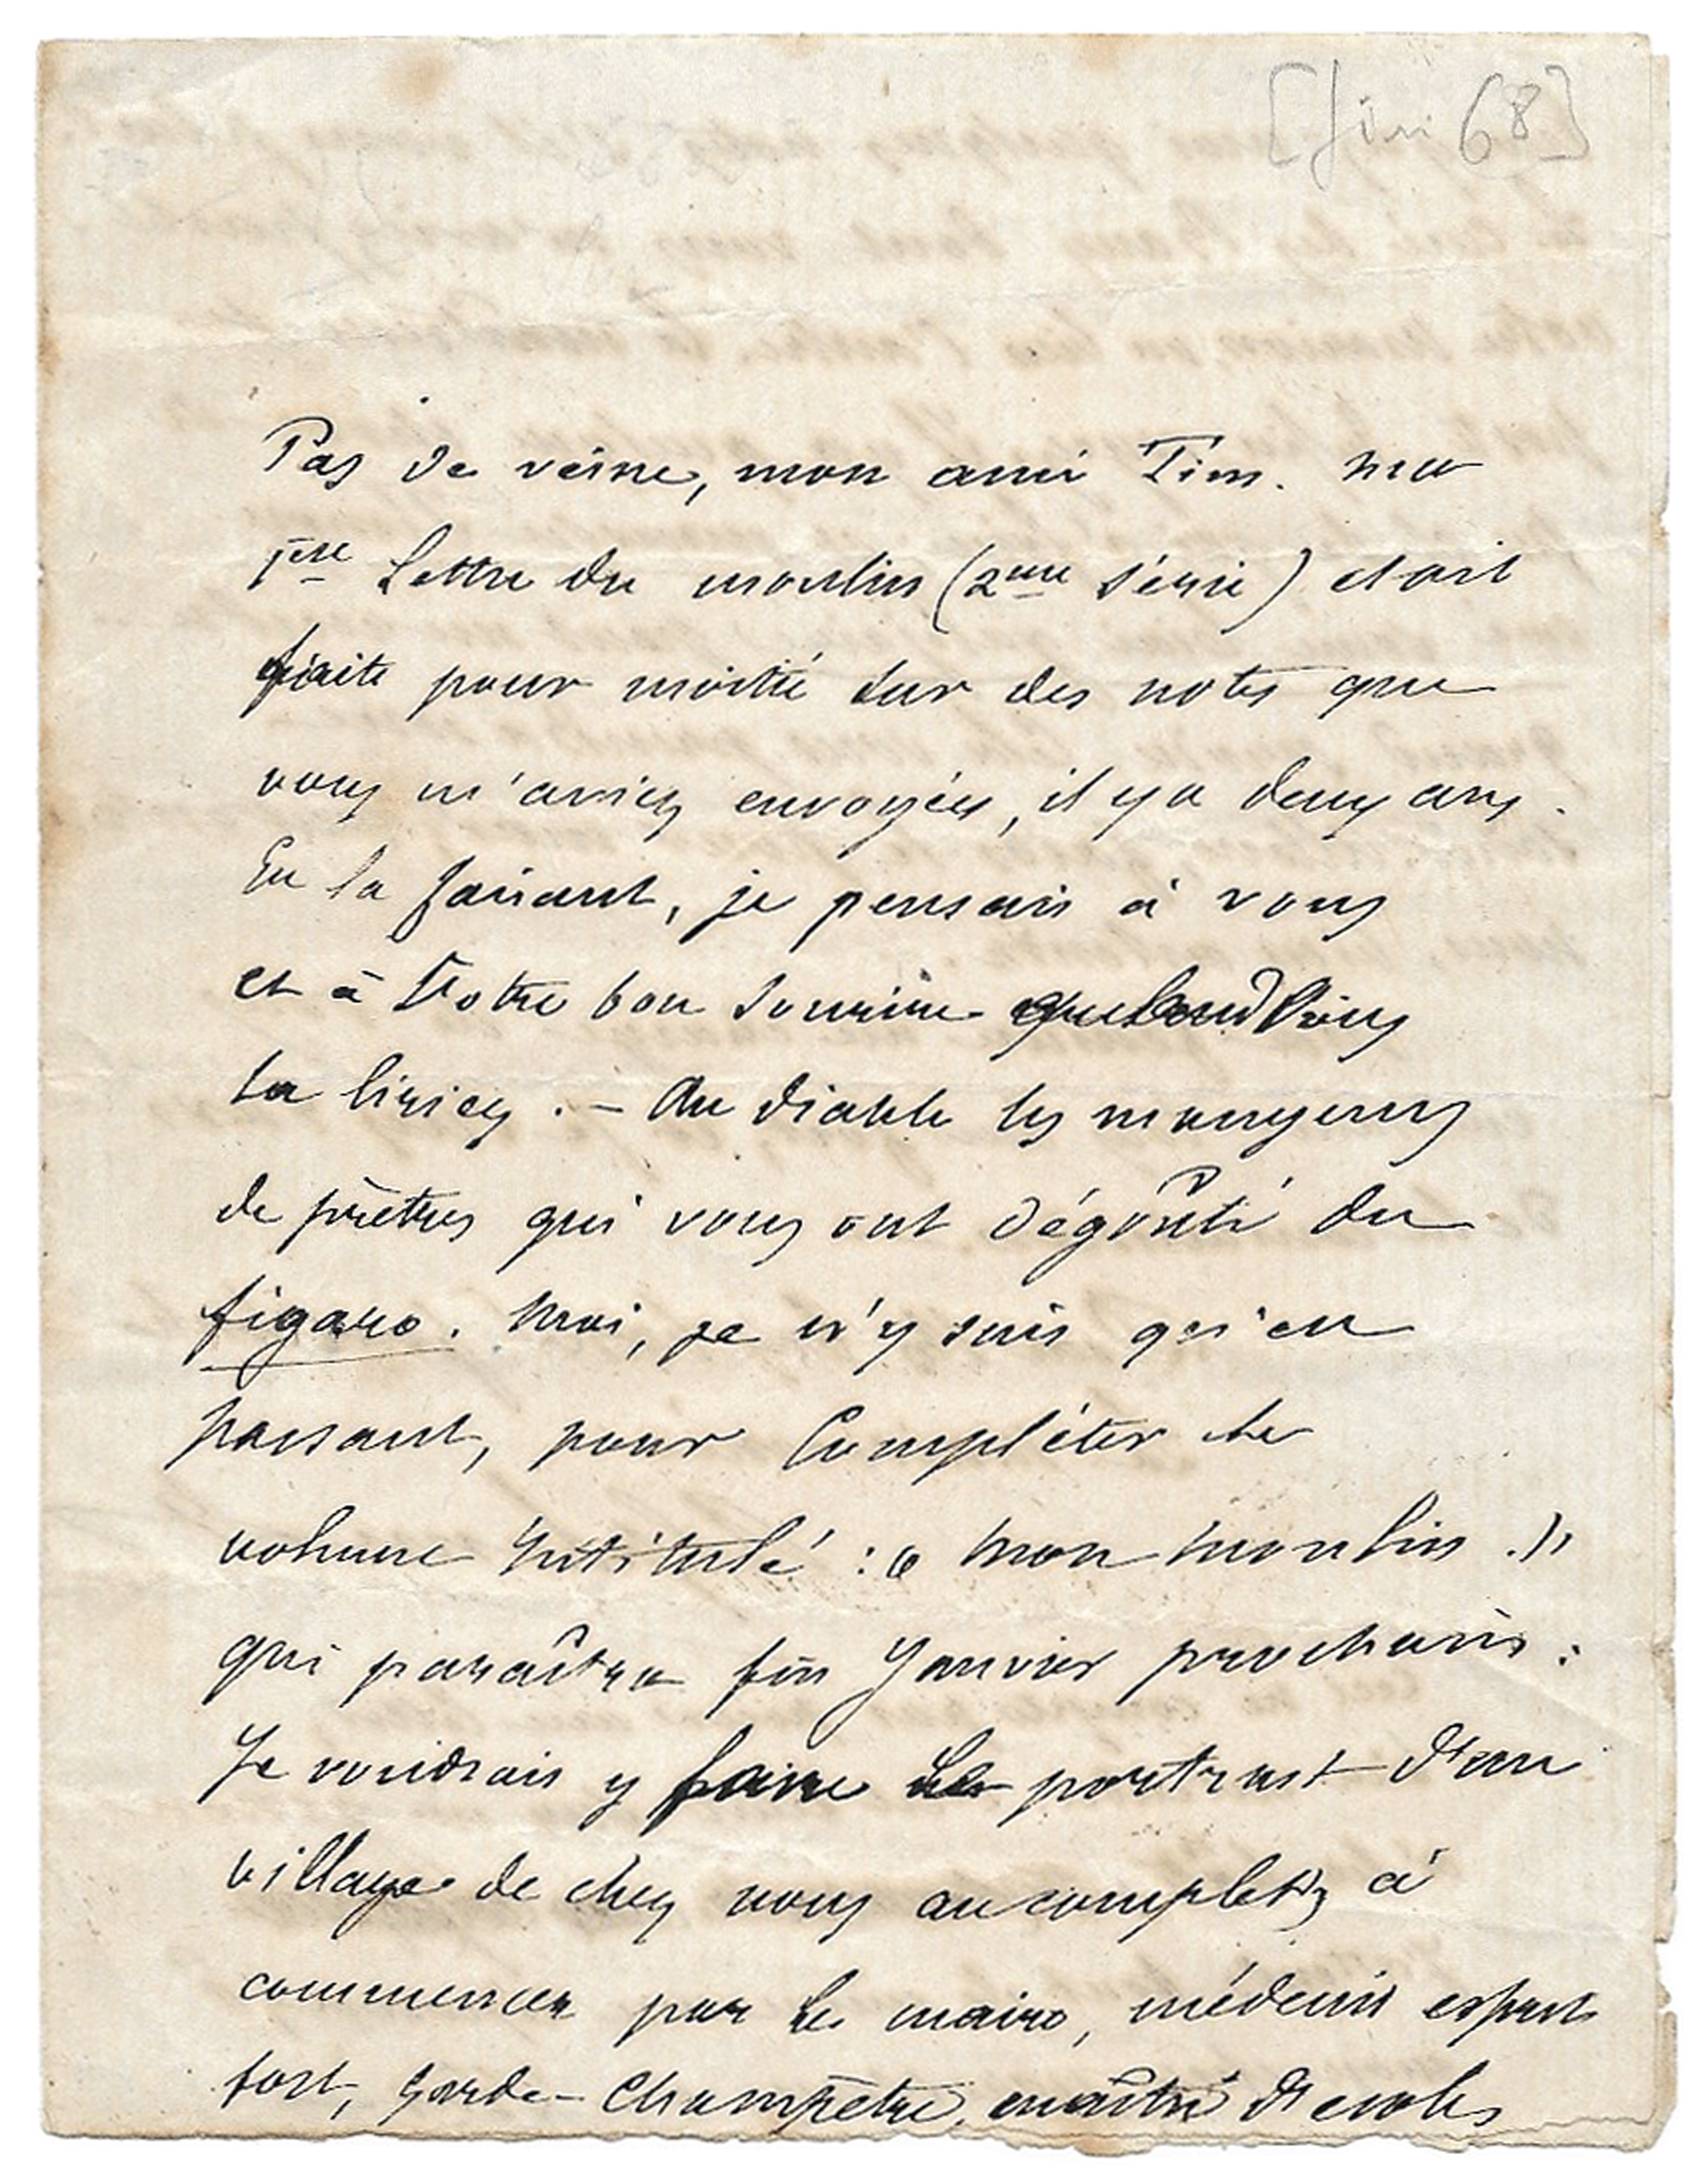 [Juin 68]
Pas de veine, mon ami Tim. Ma
1ère Lettre du moulin (2ème série) etait
faite pour moitié sur des notes que
vous m'aviez envoyées, il y a deux ans.
En la faisant, je pensais à vous
et à Votre bon sourire quand vous
la liriez. – Au diable les mangeurs
de prêtres qui vous ont dégoûté du
figaro. Moi, je n'y suis qu'en
passant, pour Compléter le
volume intitulé : « Mon Moulin. »
qui paraîtra fin Janvier prochain :
Je voudrais y faire le portrait d'un
village de chez nous au complet, à
commencer par le maire, médecin esprit
fort, garde-Champêtre, maître d'école